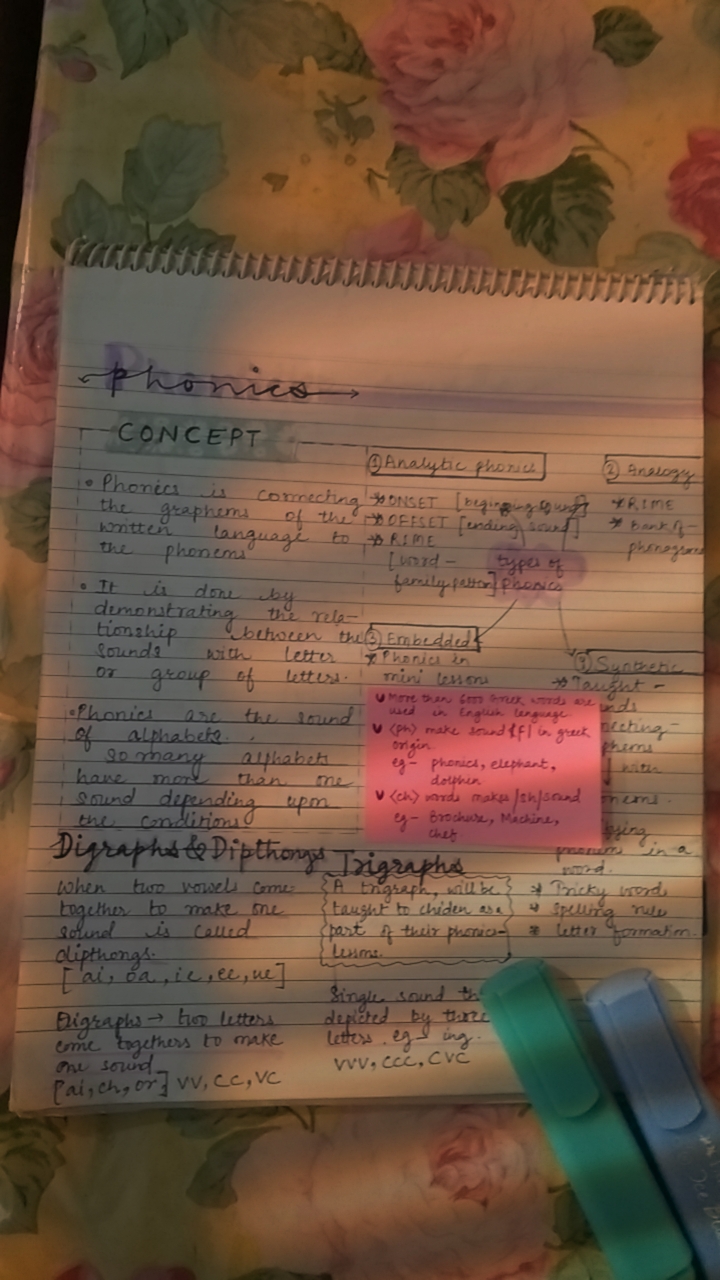 Phonics
CONCEPT
• Phonics is connecting
the graphems of the
written language to
the phonems
• It is done by
demonstrating the rela-
tionship between the
sounds with letter
or group of letters.
• Phonics are the sound
of alphabets.
so many alphabets
have more than one
sound depending upon
the conditions.
① Analytic phonics
ONSET [beginning sound]
OFFSET [ending sound]
RIME
[word-
family patten]
types of
Phonics
② Analogy
RIME
Bank of-
phonograms
③ Embedded
Phonics in
mini lessons
Synthetic
Taught -
with
phonem in a
word.
Tricky words
spelling rule
letter formation.
More than 6000 Greek words are
used in English language
<ph> make sound |f| in greek
origin.
eg- phonics, elephant,
dolphin
<ch> words makes /sh/sound
eg- Brochure, Machine,
chef.
Digraphs & Dipthongs
when two vowels come
together to make one
sound is called
dipthongs.
[ai, oa, ie, ee, ue]
Digraphs → two letters
come togethers to make
one sound
[ai, ch, or] VV, CC, VC
Trigraphs
A trigraph, will be
taught to chiden as a
part of their phonics-
lesson.
Single sound
depicted by three
letters. eg- ing.
VVV, CCC, CVC